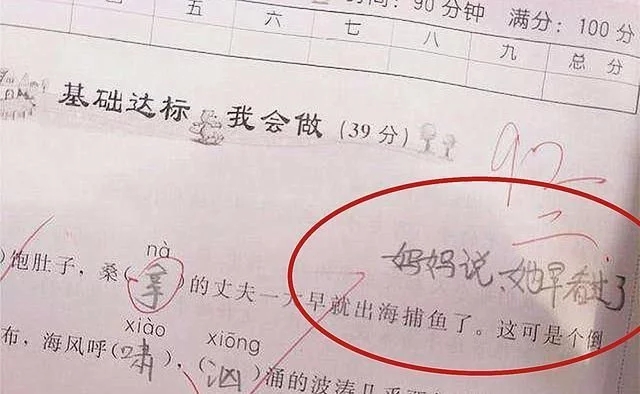 时间：90分钟 满分：100分
五 六 七 八 九 总分
基础达标 我会做（39分）
92
妈妈说，她早看过了
nà
）饱肚子，桑（拿）的丈夫一大早就出海捕鱼了。这可是个倒
xiào xiōng
布，海风呼（啸），（汹）涌的波涛几乎